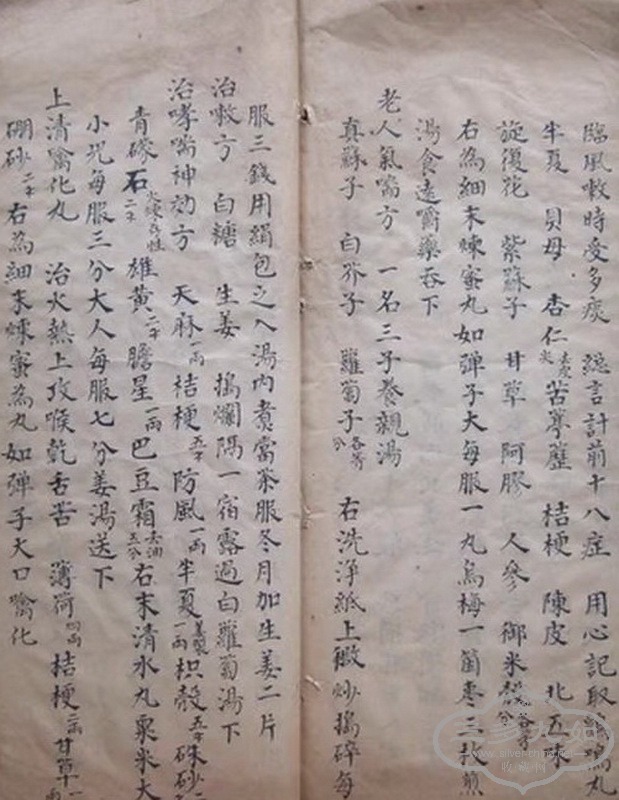 臨風嗽時受多痰　總言計前十八症　用心記取　丸
半夏　貝母　杏仁去皮尖　苦葶藶　桔梗　陳皮　北五味
旋復花　紫蘇子　甘草　阿膠　人參　御米殼各等分
右為細末煉蜜丸如彈子大每服一丸烏梅一箇棗三枚煎
湯食遠嚼藥吞下
老人氣喘方　一名三子養親湯
真蘇子　白芥子　蘿蔔子各等分　右洗淨紙上微炒搗碎每
服三錢用絹包之入湯內煮當茶服冬月加生姜二片
治嗽方　白糖　生姜　搗爛隔一宿露過白蘿蔔湯下
治哮喘神効方　天麻一兩　桔梗五子　防風一兩　半夏姜製一兩　枳殼五子　硃砂二
青礞石二子火煅存性　雄黃二子　膽星一兩　巴豆霜去油五分　右末清水丸粟米大
小児每服三分大人每服七分姜湯送下
上清噙化丸　治火熱上攻喉乾舌苦　薄荷四兩　桔梗二兩　甘草一兩
硼砂二子　右為細末煉蜜為丸如彈子大口噙化